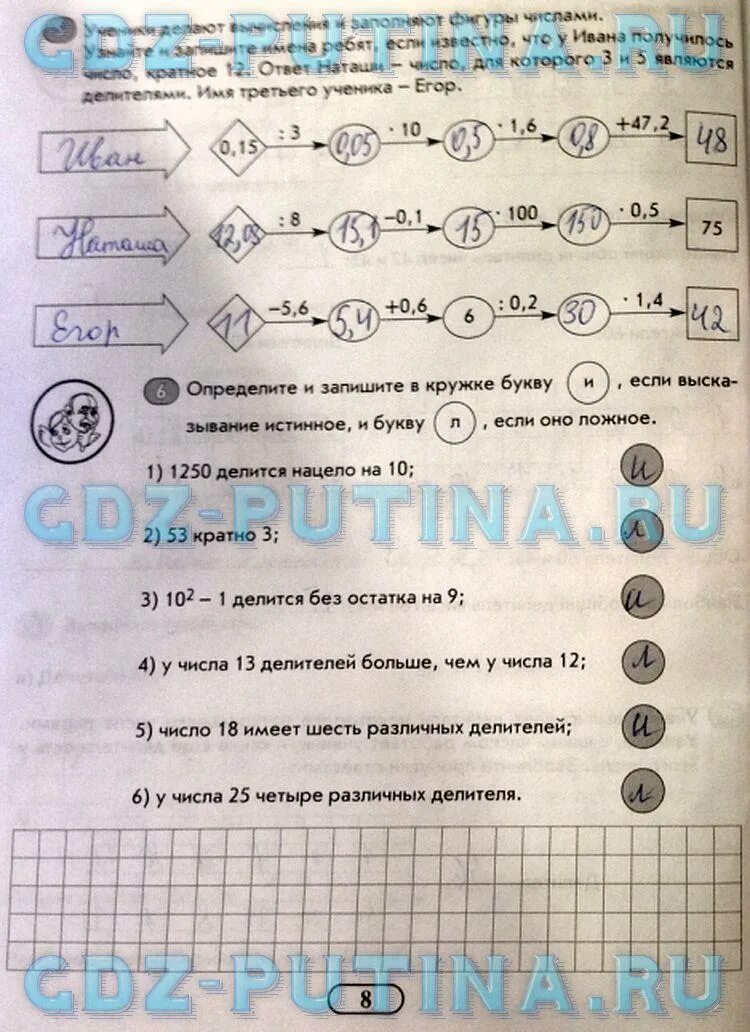 Ученики делают вычисления и заполняют фигуры числами.
Узнайте и запишите имена ребят, если известно, что у Ивана получилось
число, кратное 12. Ответ Наташи – число, для которого 3 и 5 являются
делителями. Имя третьего ученика – Егор.
GDZ-PUTINA.RU
Иван 0,15 : 3 0,05 · 10 0,5 · 1,6 0,8 +47,2 48
Наташа : 8 15,1 –0,1 15 · 100 150 · 0,5 75
GDZ-PUTINA.RU
Егор 11 –5,6 5,4 +0,6 6 : 0,2 30 · 1,4 42
6 Определите и запишите в кружке букву и , если выска-
зывание истинное, и букву л , если оно ложное.
1) 1250 делится нацело на 10; и
GDZ-PUTINA.RU
2) 53 кратно 3; л
3) 10² – 1 делится без остатка на 9; и
4) у числа 13 делителей больше, чем у числа 12; л
GDZ-PUTINA.RU
5) число 18 имеет шесть различных делителей; и
6) у числа 25 четыре различных делителя. л
GDZ-PUTINA.RU
8